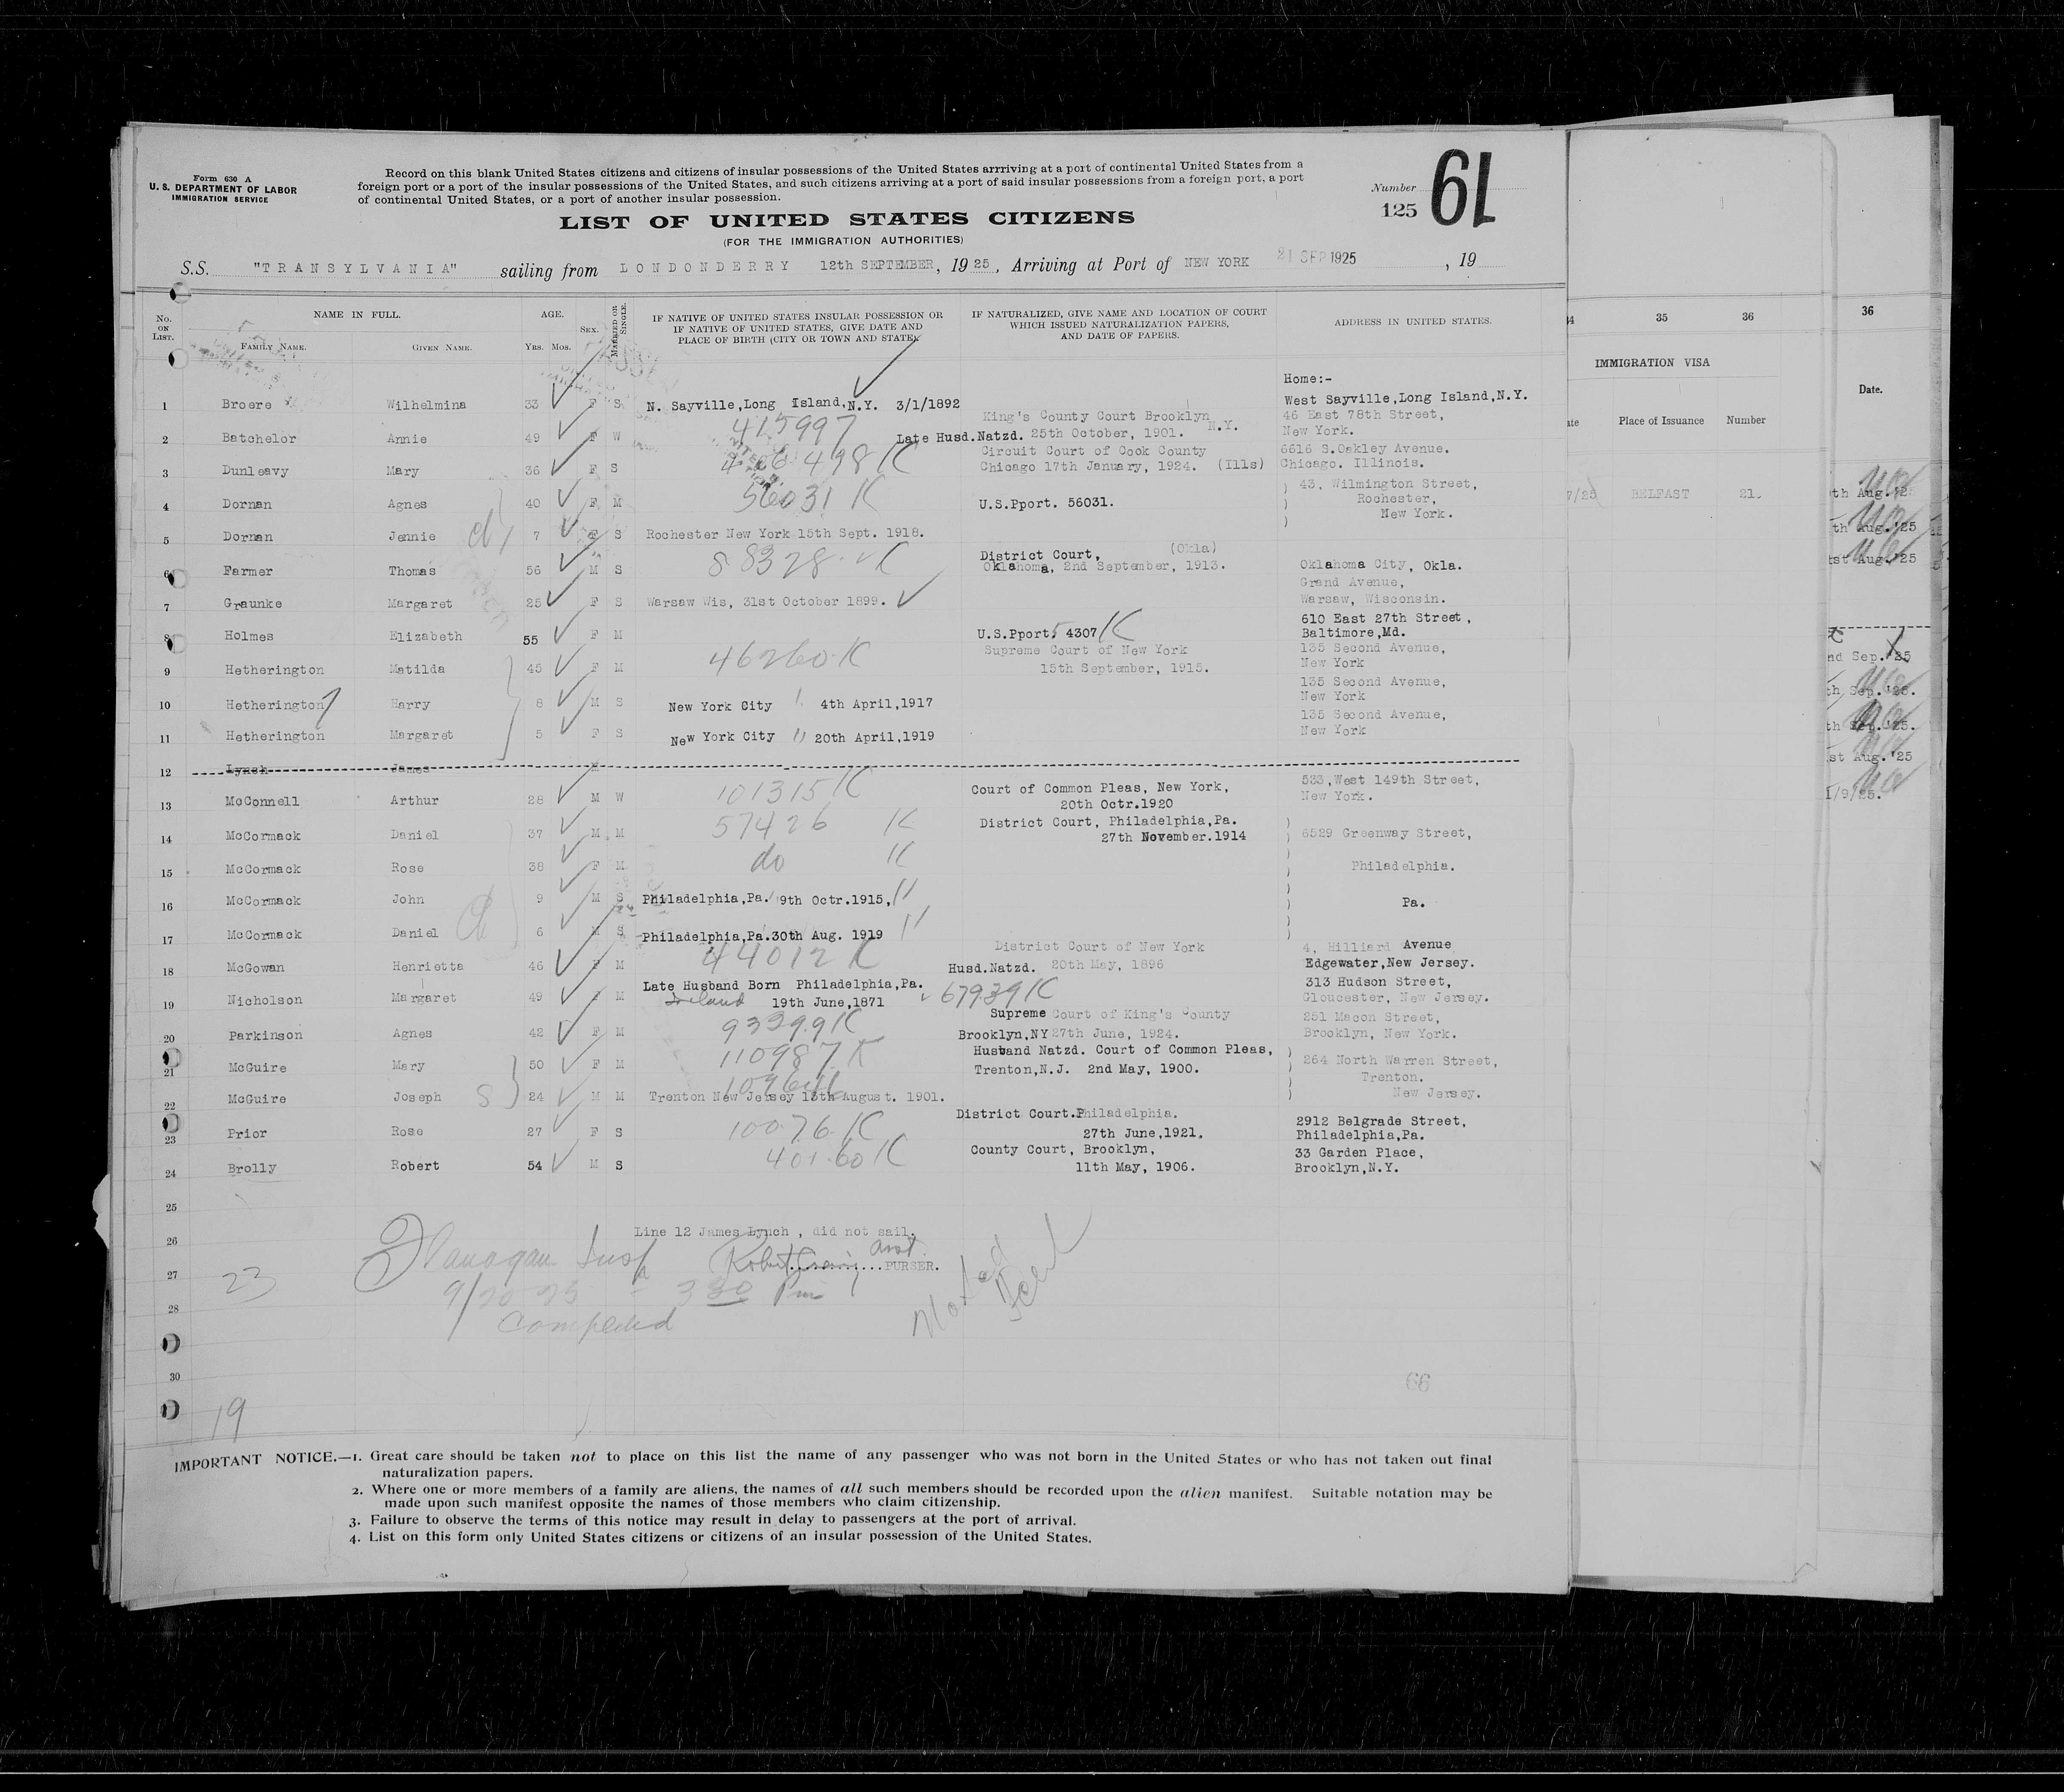 Form 630 A
U. S. DEPARTMENT OF LABOR
IMMIGRATION SERVICE
Record on this blank United States citizens and citizens of insular possessions of the United States arrriving at a port of continental United States from a
foreign port or a port of the insular possessions of the United States, and such citizens arriving at a port of said insular possessions from a foreign port, a port
of continental United States, or a port of another insular possession.
Number 125 61
LIST OF UNITED STATES CITIZENS
(FOR THE IMMIGRATION AUTHORITIES)
S.S. "TRANSYLVANIA" sailing from LONDONDERRY 12th SEPTEMBER, 1925, Arriving at Port of NEW YORK 21 SEP 1925, 19
No. ON LIST. NAME IN FULL. FAMILY NAME. GIVEN NAME. AGE. YRS. MOS. SEX. MARRIED OR SINGLE. IF NATIVE OF UNITED STATES INSULAR POSSESSION OR IF NATIVE OF UNITED STATES, GIVE DATE AND PLACE OF BIRTH (CITY OR TOWN AND STATE). IF NATURALIZED, GIVE NAME AND LOCATION OF COURT WHICH ISSUED NATURALIZATION PAPERS, AND DATE OF PAPERS. ADDRESS IN UNITED STATES.
Home:-
1 Broere Wilhelmina 33 F S N. Sayville, Long Island, N.Y. 3/1/1892 West Sayville, Long Island, N.Y.
2 Batchelor Annie 49 F W 415997 Late Husd. Natzd. King's County Court Brooklyn N.Y. 25th October, 1901. 46 East 78th Street, New York.
3 Dunleavy Mary 36 F S Circuit Court of Cook County Chicago 17th January, 1924. (Ills) 6616 S. Oakley Avenue. Chicago. Illinois.
4 Dornan Agnes 40 F M 56031 K U.S.Pport. 56031. 43, Wilmington Street, Rochester, New York.
5 Dornan Jennie 7 F S Rochester New York 15th Sept. 1918.
6 Farmer Thomas 56 M S 88328 K District Court, (Okla) Oklahoma, 2nd September, 1913. Oklahoma City, Okla.
7 Graunke Margaret 25 F S Warsaw Wis, 31st October 1899. Grand Avenue, Warsaw, Wisconsin.
8 Holmes Elizabeth 55 F M U.S.Pport. 4307 K 610 East 27th Street, Baltimore, Md.
9 Hetherington Matilda 45 F M 46260 K Supreme Court of New York 15th September, 1915. 135 Second Avenue, New York
10 Hetherington Harry 8 M S New York City 4th April, 1917 135 Second Avenue, New York
11 Hetherington Margaret 5 F S New York City 20th April, 1919 135 Second Avenue, New York
12 Lynch James
13 McConnell Arthur 28 M W 101315 K Court of Common Pleas, New York, 20th Octr. 1920 533, West 149th Street, New York.
14 McCormack Daniel 37 M M 57426 K District Court, Philadelphia, Pa. 27th November. 1914 6529 Greenway Street,
15 McCormack Rose 38 F M do K Philadelphia.
16 McCormack John 9 M S Philadelphia, Pa. 9th Octr. 1915, Pa.
17 McCormack Daniel 6 M S Philadelphia, Pa. 30th Aug. 1919
18 McGowan Henrietta 46 F M 44012 K Husd. Natzd. District Court of New York 20th May, 1896 4, Hilliard Avenue Edgewater, New Jersey.
19 Nicholson Margaret 49 F M Late Husband Born Philadelphia, Pa. Ireland 19th June, 1871 67939 K 313 Hudson Street, Gloucester, New Jersey.
20 Parkinson Agnes 42 F M 93299 K Supreme Court of King's County Brooklyn, NY 27th June, 1924. 251 Macon Street, Brooklyn, New York.
21 McGuire Mary 50 F M 110987 K Husband Natzd. Court of Common Pleas, Trenton, N.J. 2nd May, 1900. 264 North Warren Street, Trenton. New Jersey.
22 McGuire Joseph 24 M M Trenton New Jersey 13th August. 1901.
23 Prior Rose 27 F S 10076 K District Court. Philadelphia. 27th June, 1921. 2912 Belgrade Street, Philadelphia, Pa.
24 Brolly Robert 54 M S 40160 K County Court, Brooklyn, 11th May, 1906. 33 Garden Place, Brooklyn, N.Y.
25
26 Line 12 James Lynch, did not sail.
27 23 Flanagan Insp Asst. PURSER.
28 Completed
30
19
66
IMPORTANT NOTICE.—1. Great care should be taken not to place on this list the name of any passenger who was not born in the United States or who has not taken out final
naturalization papers.
2. Where one or more members of a family are aliens, the names of all such members should be recorded upon the alien manifest. Suitable notation may be
made upon such manifest opposite the names of those members who claim citizenship.
3. Failure to observe the terms of this notice may result in delay to passengers at the port of arrival.
4. List on this form only United States citizens or citizens of an insular possession of the United States.
35 36
IMMIGRATION VISA
Place of Issuance Number
BELFAST 21.
36
Date.
th Aug. '25
th Aug. '25
1st Aug. '25
nd Sep. '25
th Sep. '25.
th Sep. '25.
1st Aug. '25
1/9/25.